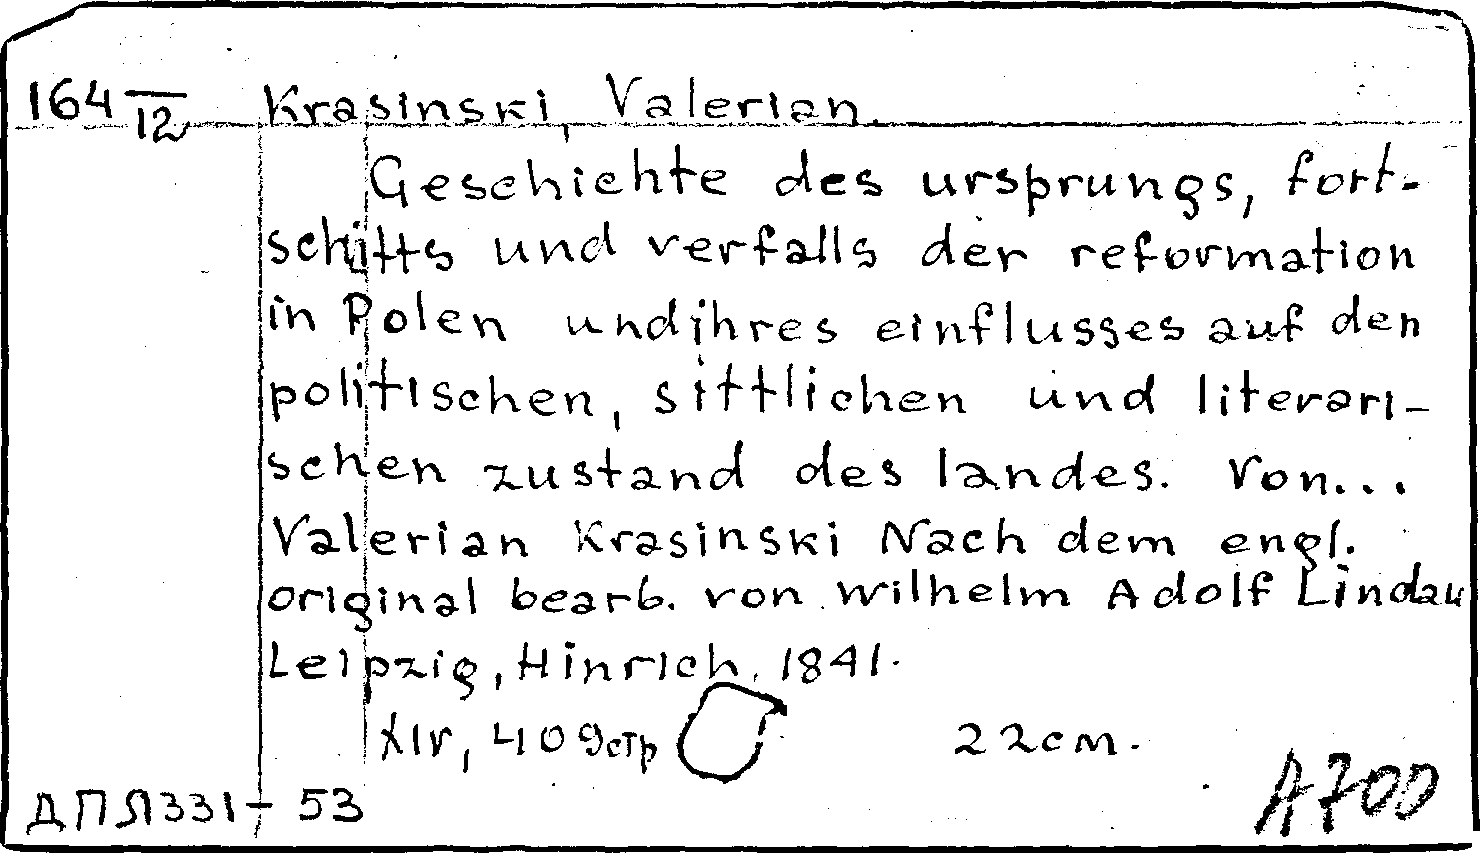 164 12 Krasinski, Valerian.
Geschichte des ursprungs, fort-
schitts und verfalls der reformation
in Polen und ihres einflusses auf den
politischen, sittlichen und literari-
schen zustand des landes. Von...
Valerian Krasinski Nach dem engl.
original bearb. von Wilhelm Adolf Lindau
Leipzig, Hinrich, 1841.
XIV, 409стр 22cm.
ДПЛ331-53
A700